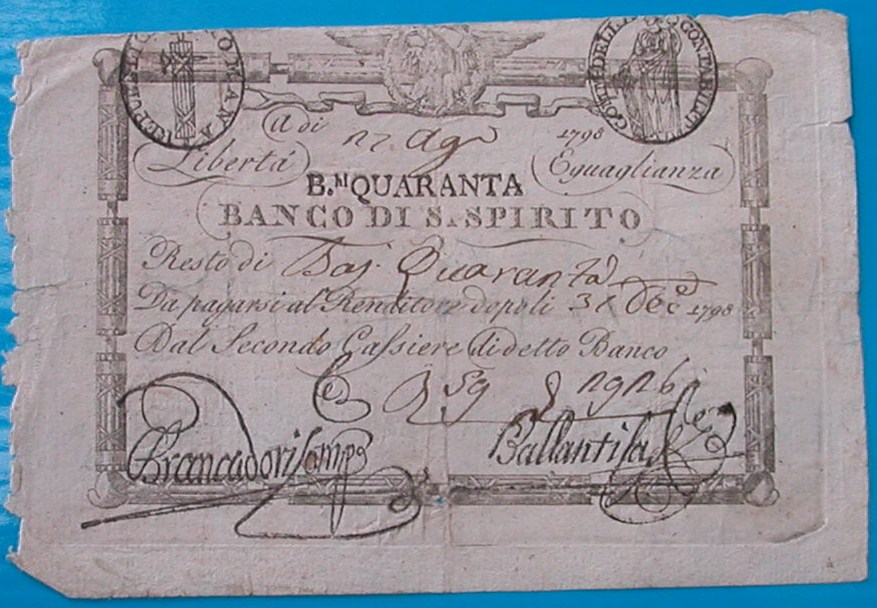 REPUBLICA ROMANA
CONTABILITA
A di 27 Ag 1798
Libertá Eguaglianza
B.M QUARANTA
BANCO DI S. SPIRITO
Resto di Baj. Quaranta
Da pagarsi al Renditore dopo li 31 Dec.e 1798
Dal Secondo Cassiere di detto Banco
59
Brancadori
Ballanti